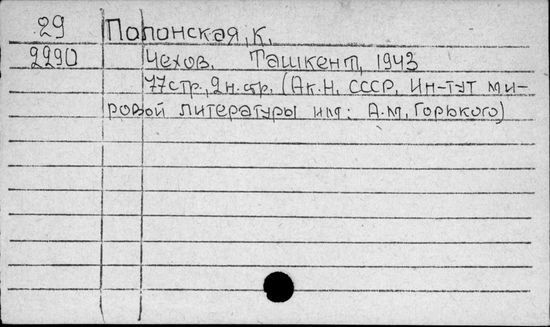 29 Полонская, К.
2290 Чехов. Ташкент, 1943
77 стр., 2 н. стр. (Ак. Н. СССР, Ин-тут ми-
ровой литературы им: А.М. Горького)